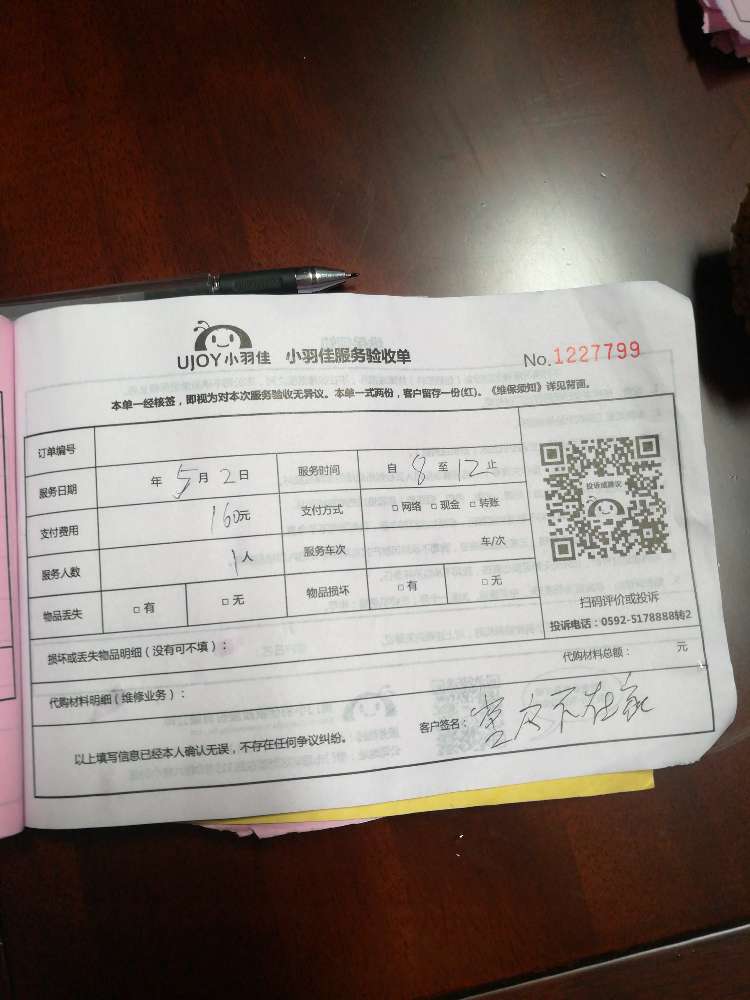 UJOY小羽佳 小羽佳服务验收单 No.1227799
本单一经核签，即视为对本次服务验收无异议。本单一式两份，客户留存一份(红)。《维保须知》详见背面。
订单编号
服务日期 年 5 月 2 日 服务时间 自 8 至 12 止
支付费用 160元 支付方式 □ 网络 □ 现金 □ 转账
服务人数 1人 服务车次 车/次
物品丢失 □ 有 □ 无 物品损坏 □ 有 □ 无
投诉或建议
扫码评价或投诉
投诉电话：0592-5178888转2
损坏或丢失物品明细（没有可不填）：
代购材料明细（维修业务）： 代购材料总额： 元
以上填写信息已经本人确认无误，不存在任何争议纠纷。 客户签名： 不在家